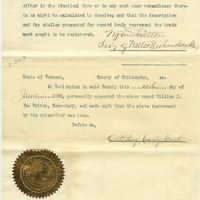 either in the identical form or in any such near resemblance there-
to as might be calculated to deceive; and that the description and
the facsimiles presented for record truly represent the trade
mark sought to be registered.
State of Vermont, County of Chittenden, ss.
At Burlington in said County this day of
June 1898, personally appeared the above named William J.
Van Patten, Secretary, and made oath that the above instrument
by him subscribed was true.
Before me,